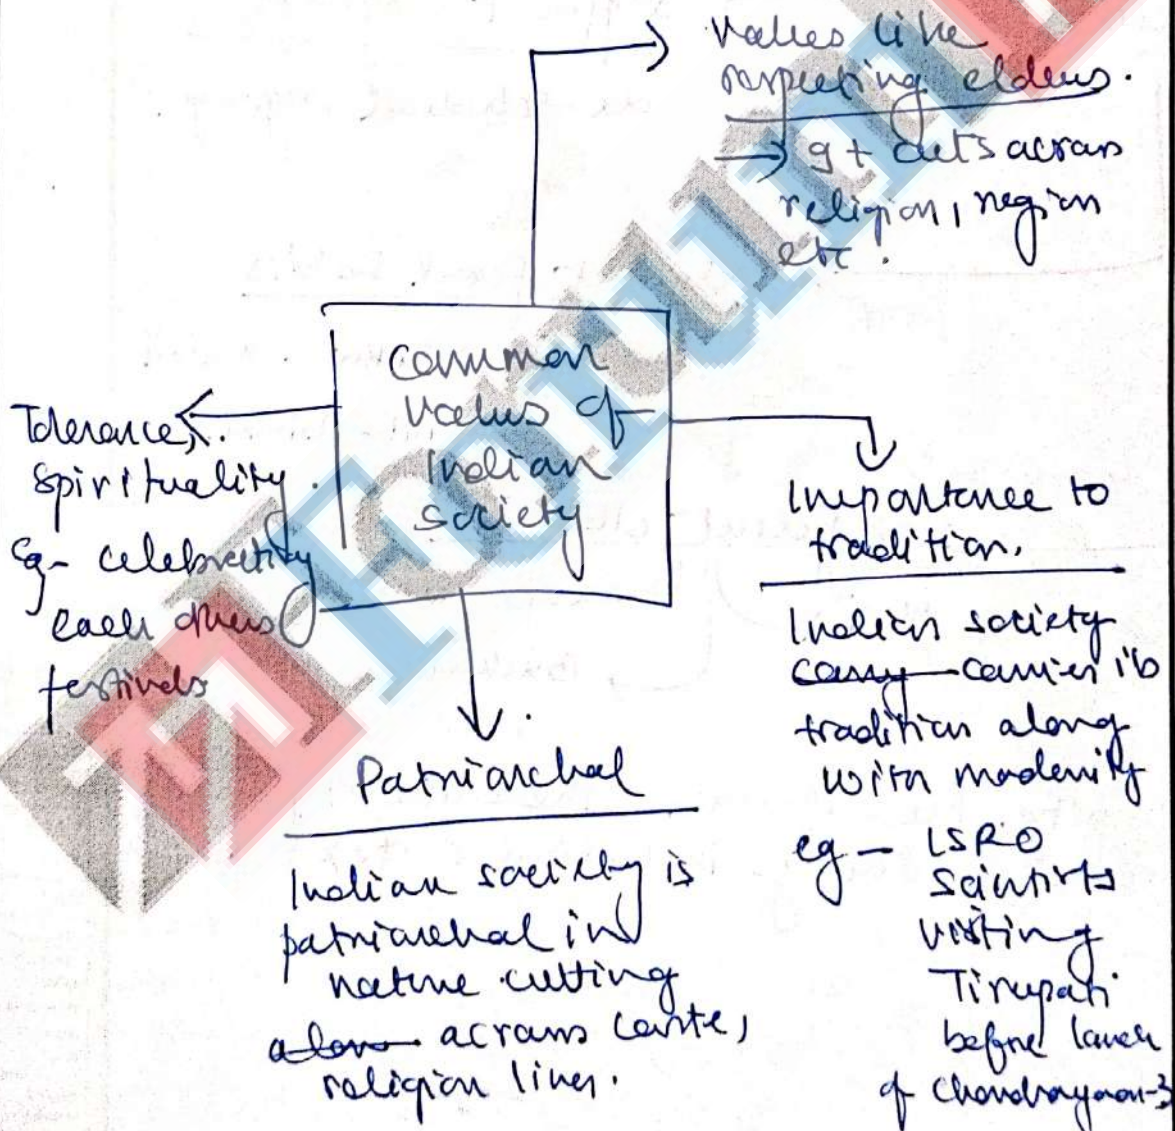 Values like
respecting elders.
→ It cuts across
religion, region
etc.
Common
Values of
Indian
society
Tolerance,
spirituality.
eg- celebrating
each others
festivals
Importance to
tradition.
Indian society
carry carries its
tradition along
with modernity
eg - ISRO
Scientists
visiting
Tirupati
before launch
of Chandrayaan-3
Patriarchal
Indian society is
patriarchal in
nature cutting
along across caste,
religion lines.
Forum